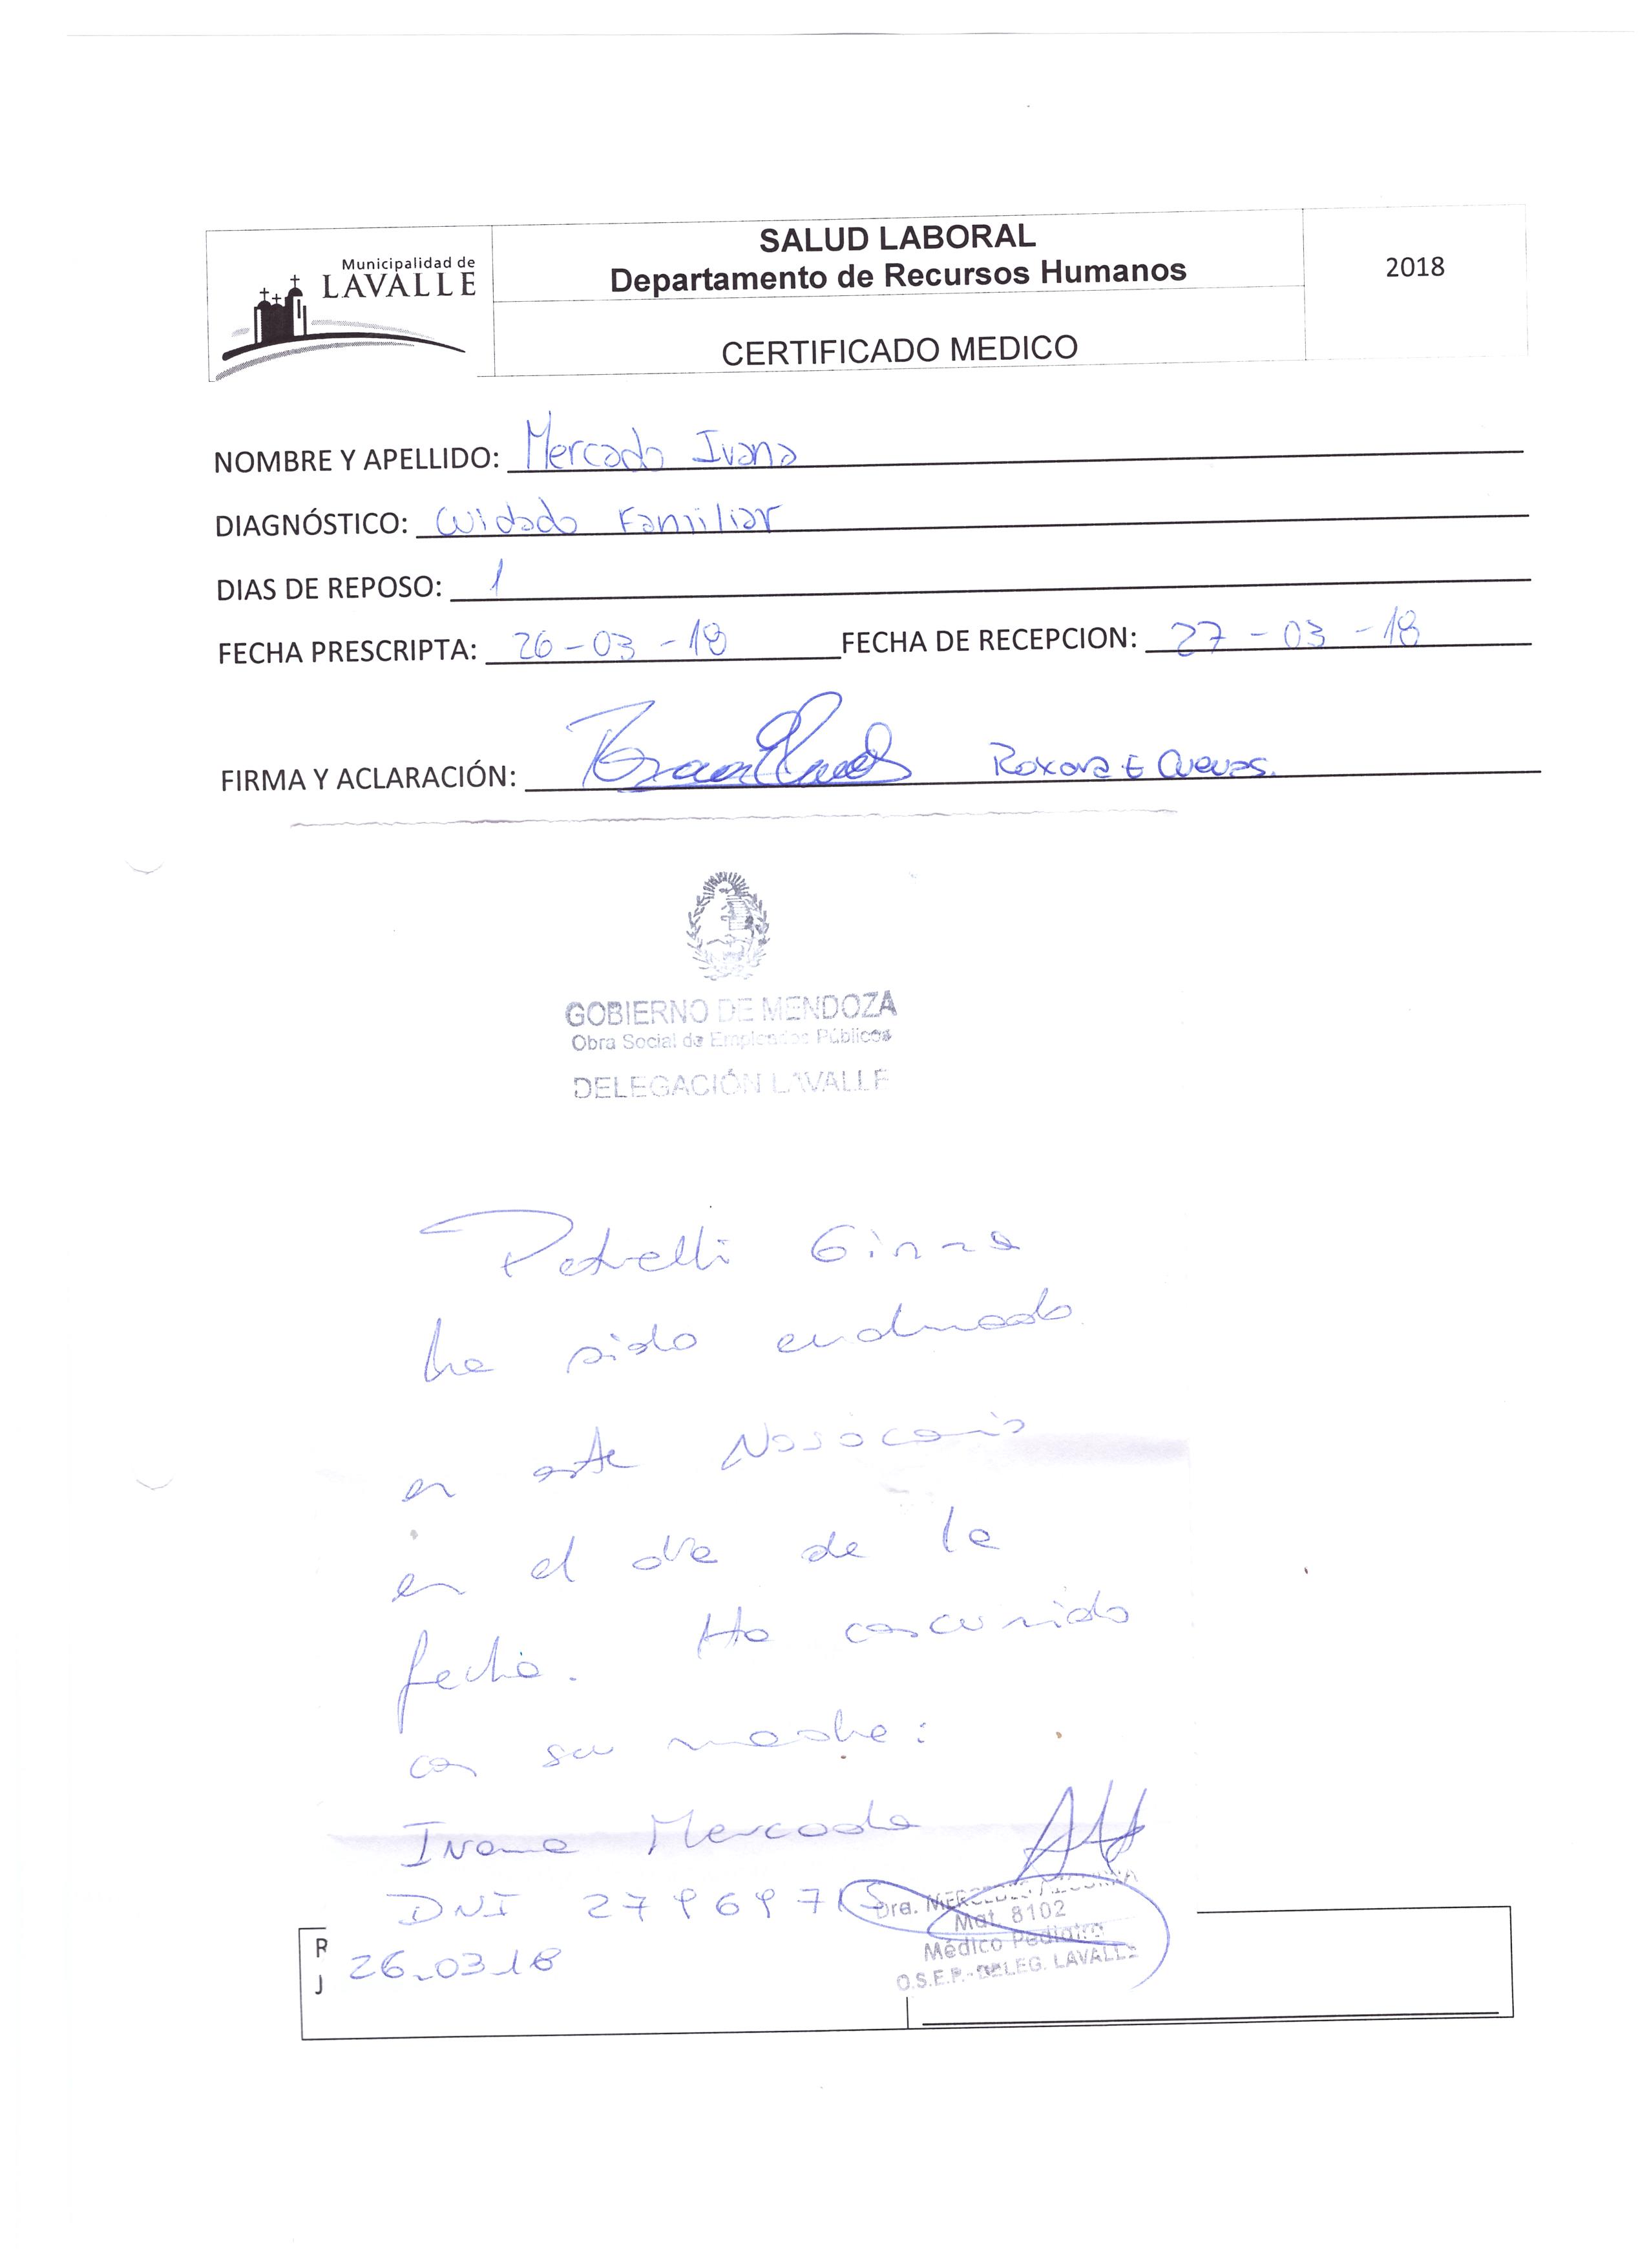 Municipalidad de
LAVALLE
SALUD LABORAL
Departamento de Recursos Humanos
2018
CERTIFICADO MEDICO
NOMBRE Y APELLIDO: Mercado Ivana
DIAGNÓSTICO: Cuidado Familiar
DIAS DE REPOSO: 1
FECHA PRESCRIPTA: 26-03-18 FECHA DE RECEPCION: 27-03-18
FIRMA Y ACLARACIÓN: Roxana E Cuevas.
GOBIERNO DE MENDOZA
Obra Social de Empleados Públicos
DELEGACIÓN LAVALLE
Petrelli Ginna
ha sido evaluado
en este Nosocomio
en el día de la
fecha. Ha concurrido
con su madre:
Ivana Mercado
DNI 2796971
Dra. MERCEDES
Mat. 8102
Médico Pediatra
O.S.E.P.-DELEG. LAVALLE
R
J
26.03.18